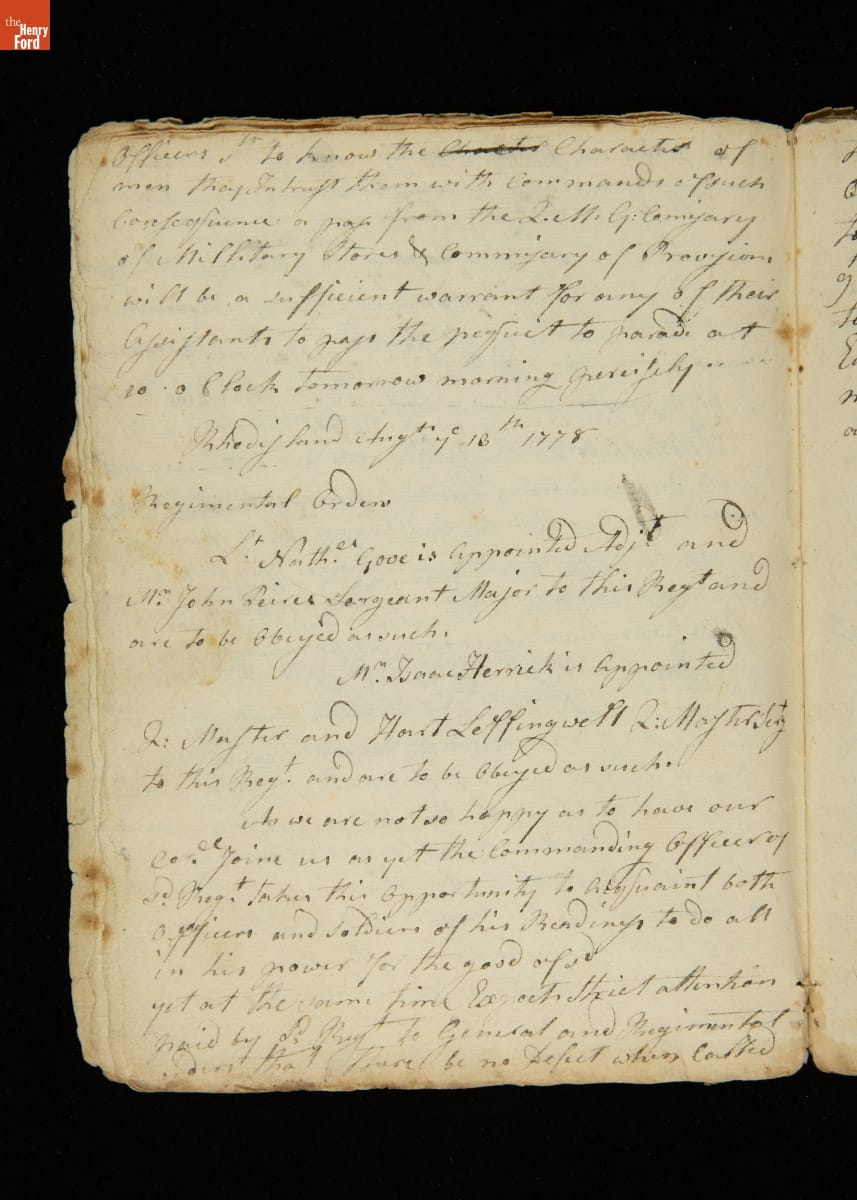 the Henry Ford
Officers to know the Character of
men they Intrust them with Commands of such
Consequence a pass from the Q. M. G: Comissary
of Millitary Stores & Commissary of Provisions
will be a sufficient warrant for any of their
Assistants to pass the pequet to parade at
10 o Clock tomorrow morning
Rhodisland Augt ye 13th 1778
Regimental Orders
Lt Nathel Gove is Appointed Adjt and
Mr John Peirce Sergeant Major to this Regt and
are to be Obeyed as such.
Mr Isaac Herrick is Appointed
Q: Master and Hart Leffingwell Q: Master Serg
to this Regt. and are to be Obeyed as such.
As we are not so happy as to have our
Coll Joine us as yet the Commanding Officer of
Sd Regt takes this Opportunity to Acquaint both
Officers and Soldiers of his Readinys to do all
in his power for the good of sd
yet at the same time Expects Strict attention
paid by Sd Regt to General and Regimental
orders that there be no Defect when Called